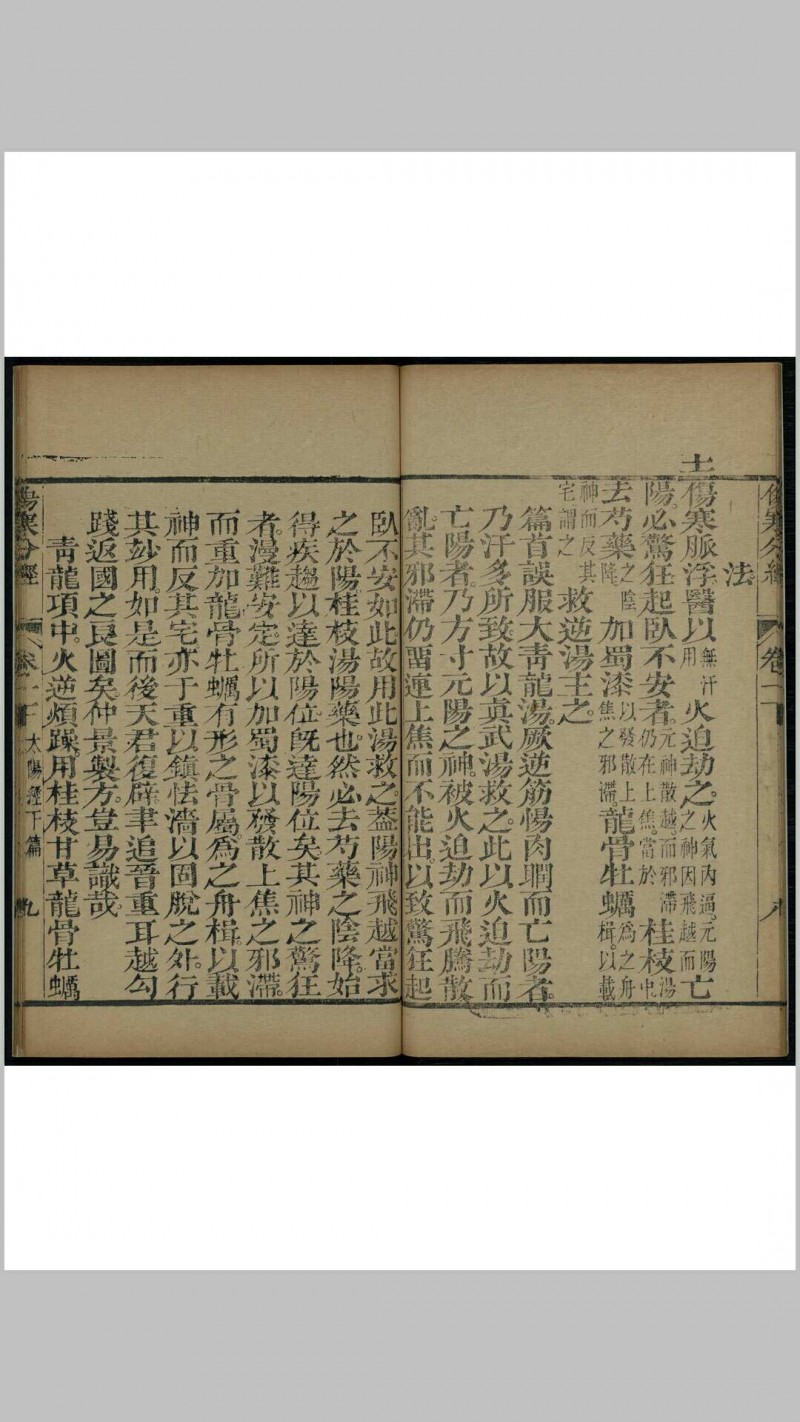 法
土傷寒脈浮醫以用無汗火迫劫之火氣內逼元陽之神因飛越而亡
陽必驚狂起臥不安者元神散越而邪滯仍在上焦當於桂枝湯中
去芍藥之陰降加蜀漆以發散上焦之邪滯龍骨牡蠣為之舟楫以載
神而反其宅謂之救逆湯主之
篇首誤服大青龍湯厥逆筋惕肉瞤而亡陽者
乃汗多所致故以真武湯救之此以火迫劫而
亡陽者乃方寸元陽之神被火迫劫而飛騰散
亂其邪滯仍畱連上焦而不能出以致驚狂起
臥不安如此故用此湯救之葢陽神飛越當求
之於陽桂枝湯陽藥也然必去芍藥之陰降始
得疾趨以達於陽位旣達陽位矣其神之驚狂
者漫難安定所以加蜀漆以發散上焦之邪滯
而重加龍骨牡蠣有形之骨屬為之舟楫以載
神而反其宅亦于重以鎮怯濇以固脫之外行
其玅用如是而後天君復辟聿追晉重耳越勾
踐返國之良圖矣仲景製方豈易識哉
青龍項中火逆煩躁用桂枝甘草龍骨牡蠣
傷寒分經 卷一下 太陽經下篇 九